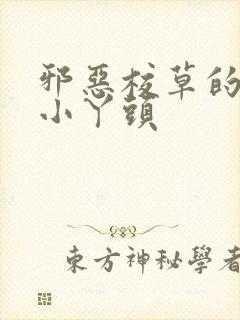 邪惡校草的
小丫頭
東方神秘學者